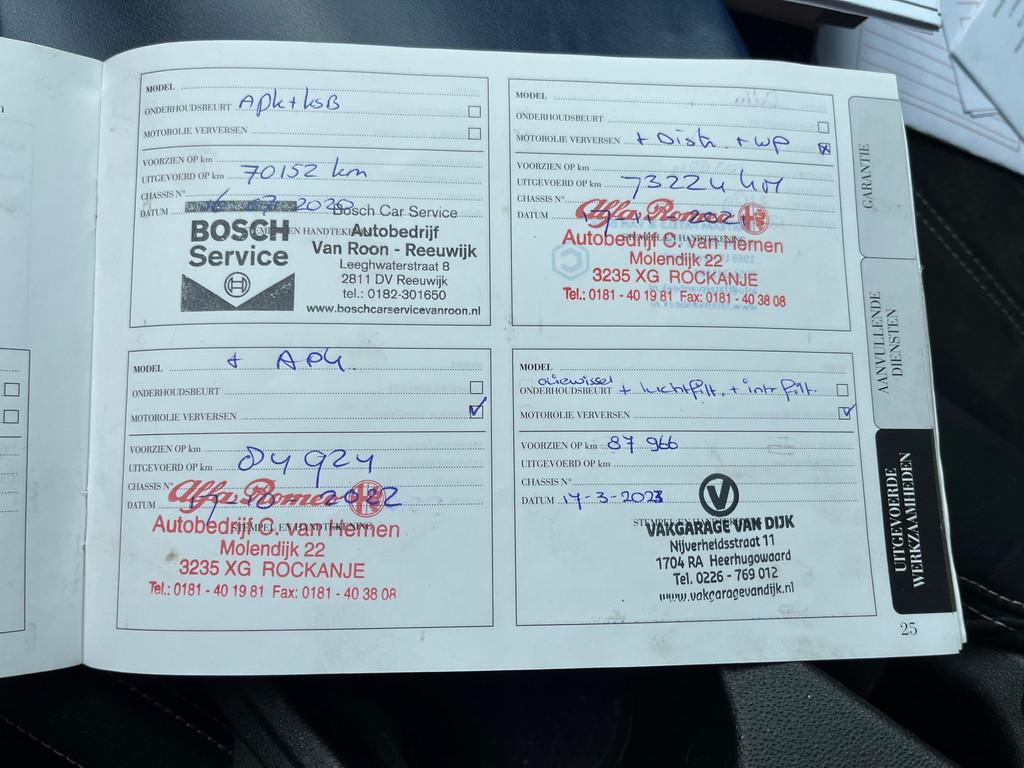 MODEL
ONDERHOUDSBEURT APK + KSB
MOTOROLIE VERVERSEN
VOORZIEN OP km
UITGEVOERD OP km 70152 km
CHASSIS N°
DATUM 16 07 2020
STEMPEL EN HANDTEKENING
BOSCH
Service
Bosch Car Service
Autobedrijf
Van Roon - Reeuwijk
Leeghwaterstraat 8
2811 DV Reeuwijk
tel.: 0182-301650
www.boschcarservicevanroon.nl
MODEL
ONDERHOUDSBEURT
MOTOROLIE VERVERSEN + Distr. + wp
VOORZIEN OP km
UITGEVOERD OP km 73224 km
CHASSIS N°
DATUM 2021
Alfa Romeo
STEMPEL EN HANDTEKENING
Autobedrijf C. van Hemen
Molendijk 22
3235 XG ROCKANJE
Tel.: 0181 - 40 19 81 Fax: 0181 - 40 38 08
+ APK
MODEL
ONDERHOUDSBEURT
MOTOROLIE VERVERSEN
VOORZIEN OP km
UITGEVOERD OP km 84924
CHASSIS N°
DATUM 2022
Alfa Romeo
STEMPEL EN HANDTEKENING
Autobedrijf C. van Hemen
Molendijk 22
3235 XG ROCKANJE
Tel.: 0181 - 40 19 81 Fax: 0181 - 40 38 08
MODEL
oliewissel
ONDERHOUDSBEURT + luchtfilt. + intrfilt.
MOTOROLIE VERVERSEN
VOORZIEN OP km 87 966
UITGEVOERD OP km
CHASSIS N°
DATUM 17-3-2023
STEMPEL EN
VAKGARAGE VAN DIJK
Nijverheidsstraat 11
1704 RA Heerhugowaard
Tel. 0226 - 769 012
www.vakgaragevandijk.nl
GARANTIE
AANVULLENDE
DIENSTEN
UITGEVOERDE
WERKZAAMHEDEN
25